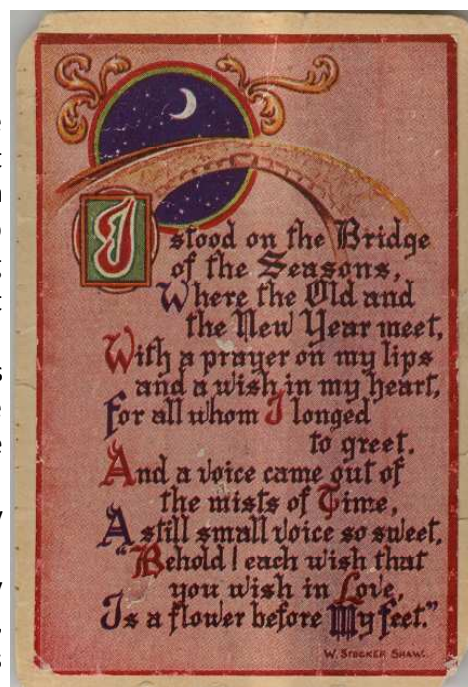 I stood on the Bridge
of the Seasons,
Where the Old and
the New Year meet,
With a prayer on my lips
and a wish in my heart,
For all whom I longed
to greet.
And a voice came out of
the mists of Time,
A still small voice so sweet,
"Behold! each wish that
you wish in Love,
Is a flower before My feet."
W. STOCKER SHAW.